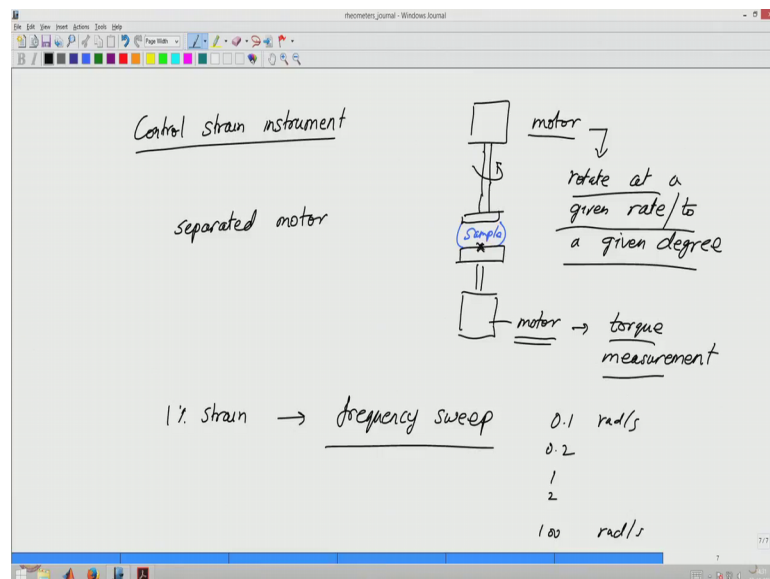 rheometers_journal - Windows Journal
File Edit View Insert Actions Tools Help
Page Width
B I
Control strain instrument
separated motor
motor
rotate at a
given rate/to
a given degree
sample
motor → torque
measurement
1% strain → frequency sweep
0.1 rad/s
0.2
1
2
100 rad/s
7/7
7